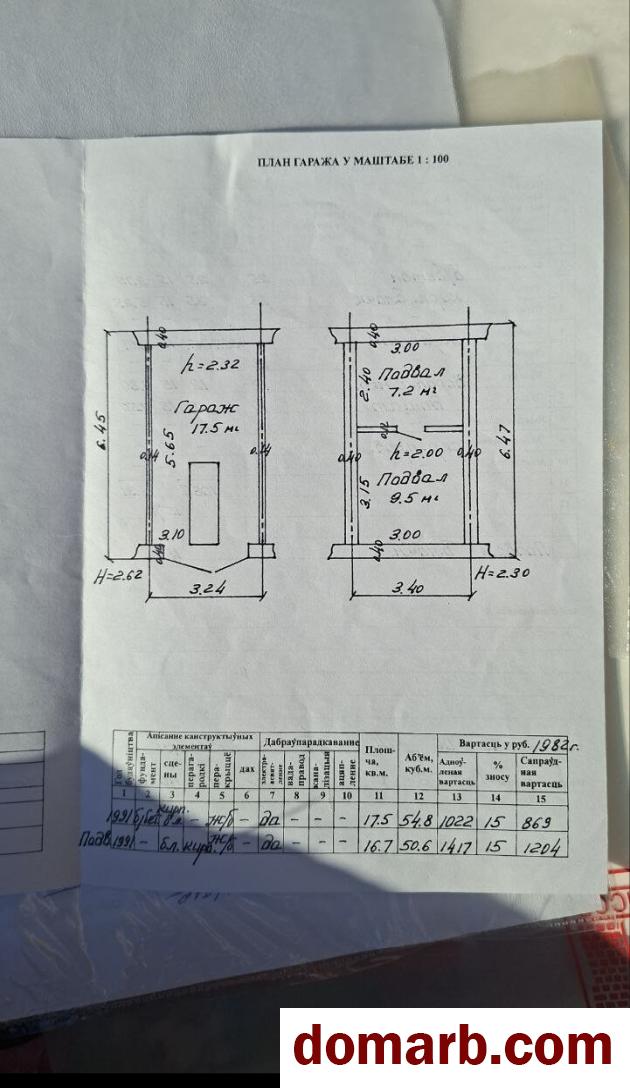 ПЛАН ГАРАЖА У МАШТАБЕ 1 : 100
0.40
h=2.32
Гараж
17.5 м²
6.45
5.65
0.14
0.14
3.10
H=2.62
3.24
0.40
3.00
2.40
Подвал
7.2 м²
0.12
6.47
0.40
h=2.00
0.40
3.15
Подвал
9.5 м²
3.00
0.40
H=2.30
3.40
Апісанне канструктыўных элементаў
Дабраўпарадкаванне
Плошча, кв.м.
Аб'ём, куб.м.
Вартасць у руб. 1982г.
Год будаўніцтва
фундамент
сцены
перагародкі
перакрыццё
дах
вадаправод
каналізацыя
ацяпленне
Адноўленая вартасць
% зносу
Сапраўдная вартасць
1 2 3 4 5 6 7 8 9 10 11 12 13 14 15
1991 кирп. – ж/б – да – – – 17.5 54.8 1022 15 869
Подв. 1991 – бл. кирп. ж/б – да – – – 16.7 50.6 1417 15 1204
domarb.com